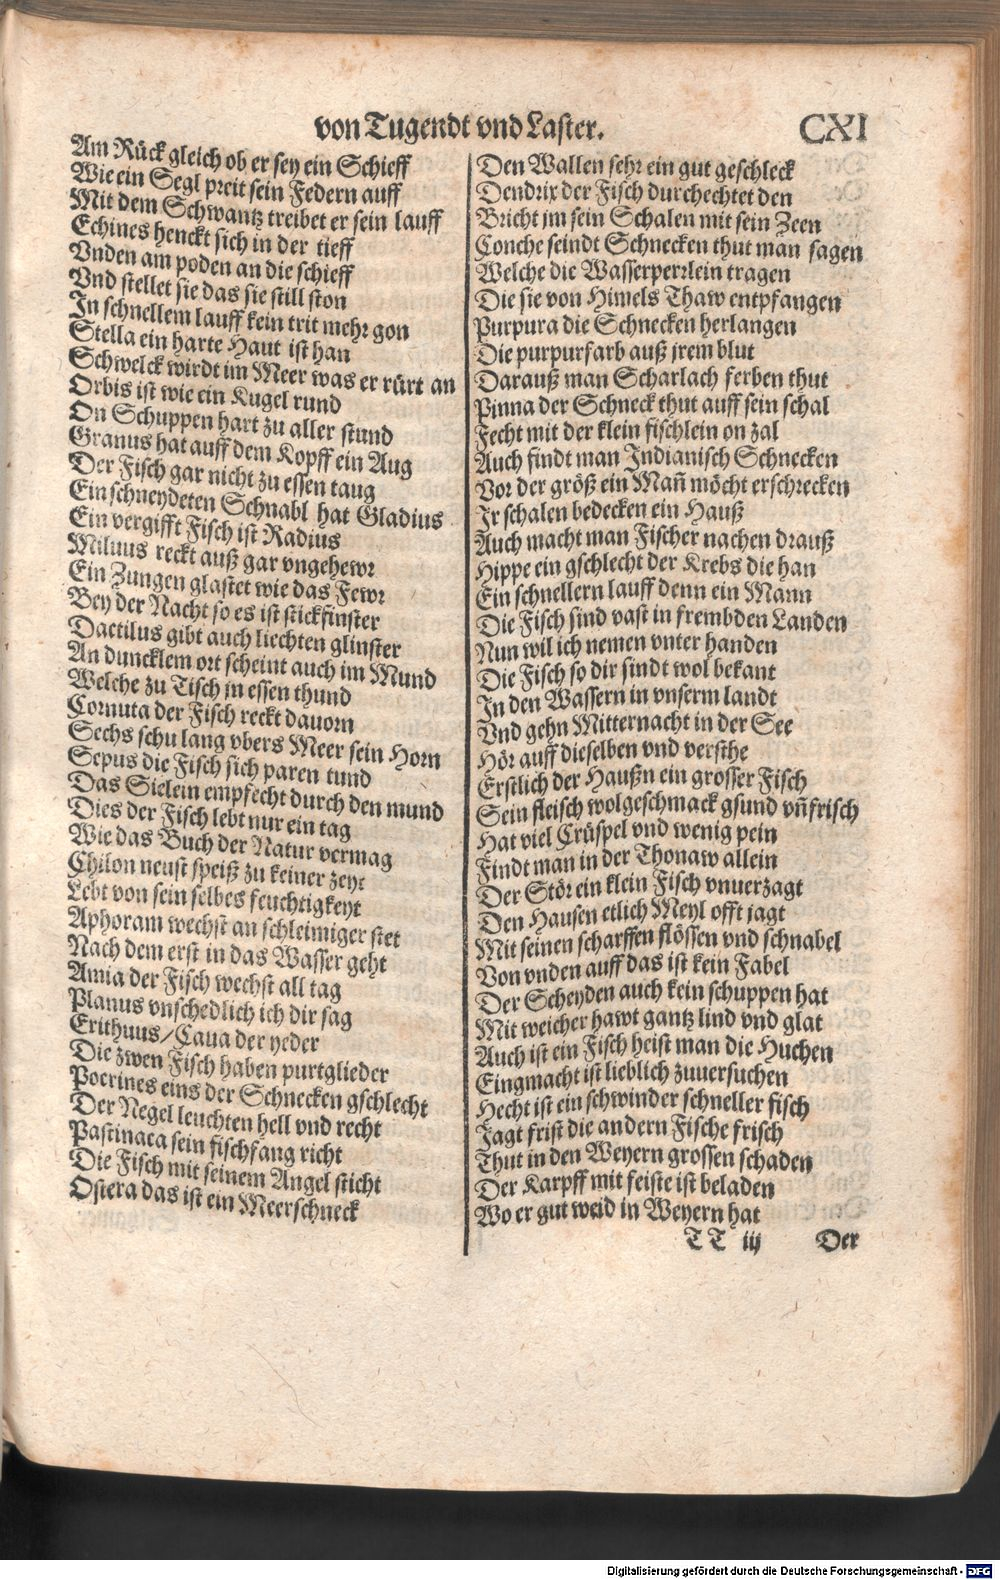 von Tugendt vnd Laster.
CXI
Am Rück gleich ob er sey ein Schieff
Wie ein Segl preit sein Federn auff
Mit dem Schwantz treibet er sein lauff
Echines henckt sich in der tieff
Vnden am poden an die schieff
Vnd stellet sie das sie still ston
In schnellem lauff kein trit mehr gon
Stella ein harte Haut ist han
Schwelck wirdt im Meer was er rürt an
Orbis ist wie ein Kugel rund
On Schuppen hart zu aller stund
Granus hat auff dem Kopff ein Aug
Der Fisch gar nicht zu essen taug
Ein schneydeten Schnabl hat Gladius
Ein vergifft Fisch ist Radius
Miluus reckt auß gar vngehewr
Ein Zungen glastet wie das Fewr
Bey der Nacht so es ist stickfinster
Dactilus gibt auch liechten glinster
An duncklem ort scheint auch im Mund
Welche zu Tisch jn essen thund
Cornuta der Fisch reckt dauorn
Sechs schu lang vbers Meer sein Horn
Sepus die Fisch sich paren tund
Das Sielein empfecht durch den mund
Dies der Fisch lebt nur ein tag
Wie das Buch der Natur vermag
Chilon neust speiß zu keiner zeyt
Lebt von sein selbes feuchtigkeyt
Aphoram wechst an schleimiger stet
Nach dem erst in das Wasser geht
Amia der Fisch wechst all tag
Planus vnschedlich ich dir sag
Erithuus/Caua der yeder
Die zwen Fisch haben purtglieder
Pocrines eins der Schnecken gschlecht
Der Negel leuchten hell vnd recht
Pastinaca sein fischfang richt
Die Fisch mit seinem Angel sticht
Ostera das ist ein Meerschneck
Den Wallen sehr ein gut geschleck
Dendrix der Fisch durchechtet den
Bricht jm sein Schalen mit sein Zeen
Conche seindt Schnecken thut man sagen
Welche die Wasserperrlein tragen
Die sie von Himels Thaw entpfangen
Purpura die Schnecken herlangen
Die purpurfarb auß jrem blut
Darauß man Scharlach ferben thut
Pinna der Schneck thut auff sein schal
Fecht mit der klein fischlein on zal
Auch findt man Indianisch Schnecken
Vor der größ ein Mañ möcht erschrecken
Jr schalen bedecken ein Hauß
Auch macht man Fischer nachen drauß
Hippe ein gschlecht der Krebs die han
Ein schnellern lauff denn ein Mann
Die Fisch sind vast in frembden Landen
Nun wil ich nemen vnter handen
Die Fisch so dir sindt wol bekant
In den Wassern in vnserm landt
Vnd gehn Mitternacht in der See
Hör auff dieselben vnd versthe
Erstlich der Haußn ein grosser Fisch
Sein fleisch wolgeschmack gsund vñ frisch
Hat viel Crüspel vnd wenig pein
Findt man in der Thonaw allein
Der Stör ein klein Fisch vnuerzagt
Den Hausen etlich Meyl offt jagt
Mit seinen scharffen flössen vnd schnabel
Von vnden auff das ist kein Fabel
Der Scheyden auch kein schuppen hat
Mit weicher hawt gantz lind vnd glat
Auch ist ein Fisch heist man die Huchen
Eingmacht ist lieblich zuuersuchen
Hecht ist ein schwinder schneller fisch
Jagt frist die andern Fische frisch
Thut in den Weyern grossen schaden
Der Karpff mit feiste ist beladen
Wo er gut weid in Weyern hat
TT iij Der
Digitalisierung gefördert durch die Deutsche Forschungsgemeinschaft - DFG